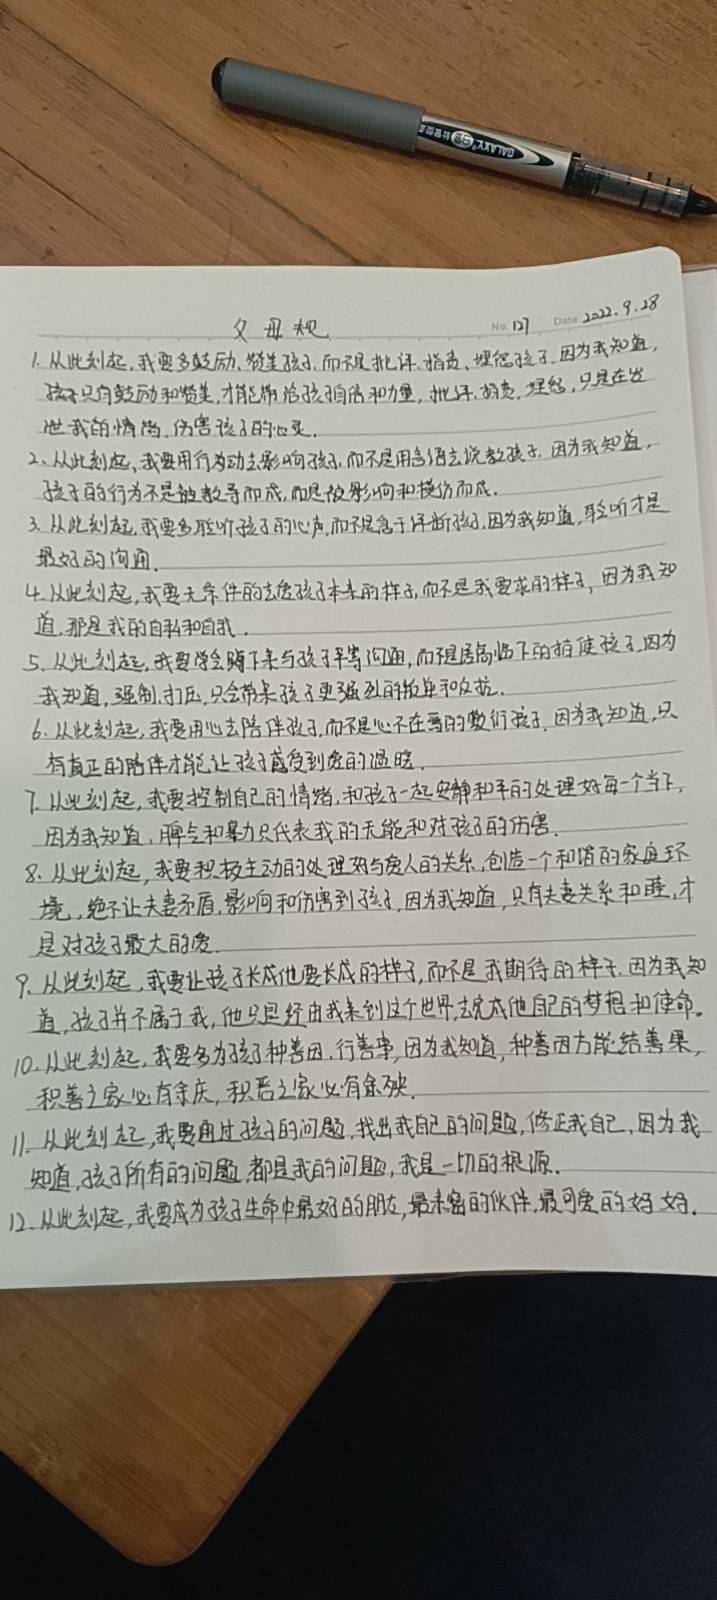 GALAXY
父母规
No. 127 Date 2022.9.28
1. 从此刻起,我要多鼓励、赞美孩子,而不是批评、指责、埋怨孩子.因为我知道,
孩子只有鼓励和赞美,才能带给孩子自信和力量,批评.指责.埋怨,只是在发
泄我的情绪.伤害孩子的心灵.
2、从此刻起,我要用行为动去影响孩子,而不是用言语去说教孩子.因为我知道,
孩子的行为不是被教导而成,而是被影响和模仿而成.
3、从此刻起,我要多聆听孩子的心声,而不是急于评断孩子.因为我知道,聆听才是
最好的沟通.
4、从此刻起,我要无条件的去爱孩子本来的样子,而不是我要求的样子,因为我知
道,那是我的自私和自我.
5、从此刻起,我要学会蹲下来与孩子平等沟通,而不是居高临下的指使孩子.因为
我知道,强制.打压,只会带来孩子更强烈的叛逆和反抗.
6、从此刻起,我要用心去陪伴孩子,而不是心不在焉的敷衍孩子.因为我知道,只
有真正的陪伴才能让孩子感受到爱的温暖.
7、从此刻起,我要控制自己的情绪,和孩子一起安静和平的处理好每一个当下,
因为我知道、脾气和暴力只代表我的无能和对孩子的伤害.
8、从此刻起,我要积极主动的处理好与爱人的关系,创造一个和谐的家庭环
境,绝不让夫妻矛盾,影响和伤害到孩子,因为我知道,只有夫妻关系和睦,才
是对孩子最大的爱.
9、从此刻起,我要让孩子长成他要长成的样子,而不是我期待的样子.因为我知
道,孩子并不属于我,他只是经由我来到这个世界,去完成他自己的梦想和使命。
10、从此刻起,我要多为孩子种善因.行善事,因为我知道,种善因方能结善果,
积善之家必有余庆,积恶之家必有余殃.
11、从此刻起,我要通过孩子的问题,找出我自己的问题,修正我自己,因为我
知道,孩子所有的问题,都是我的问题,我是一切的根源.
12、从此刻起,我要成为孩子生命中最好的朋友,最亲密的伙伴,最可爱的妈妈.